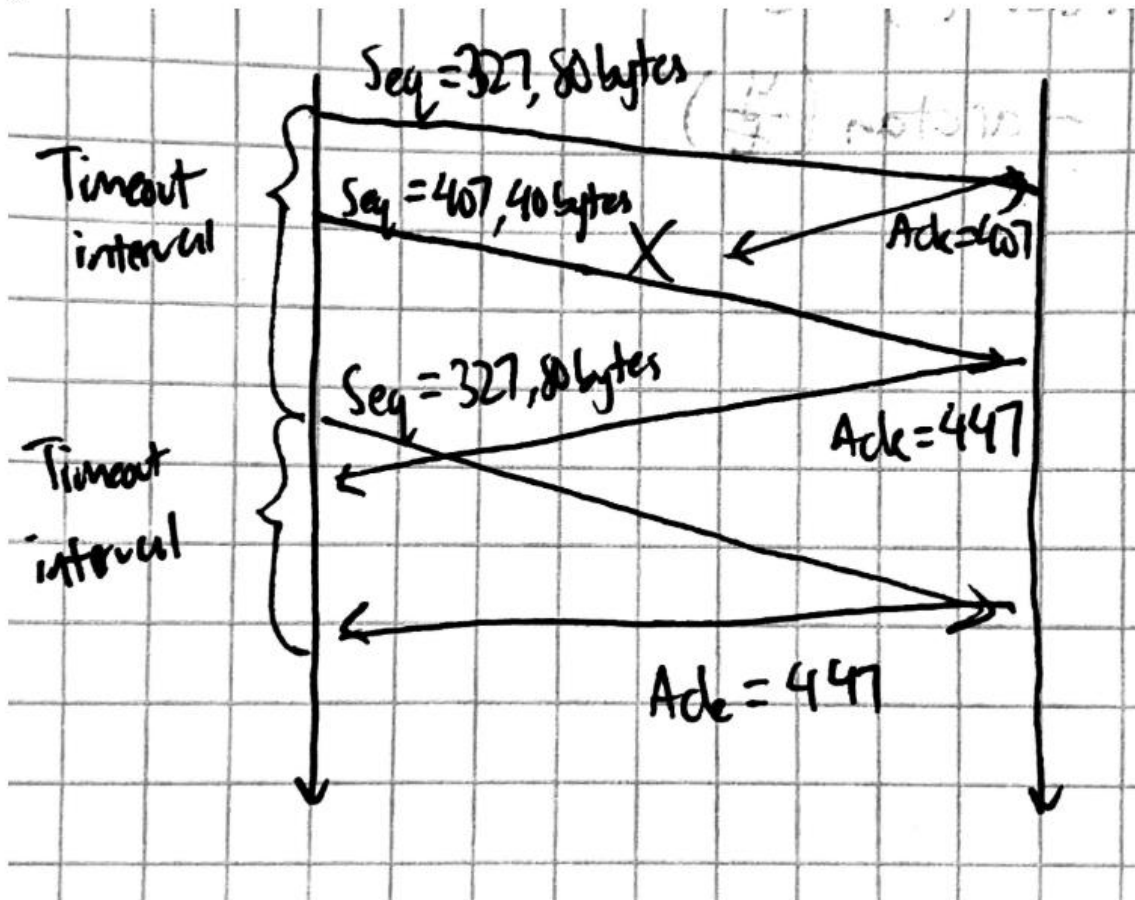 Seq = 327, 80 bytes
Timeout
interval
Seq = 407, 40 bytes
Ack = 407
Seq = 327, 80 bytes
Ack = 447
Timeout
interval
Ack = 447